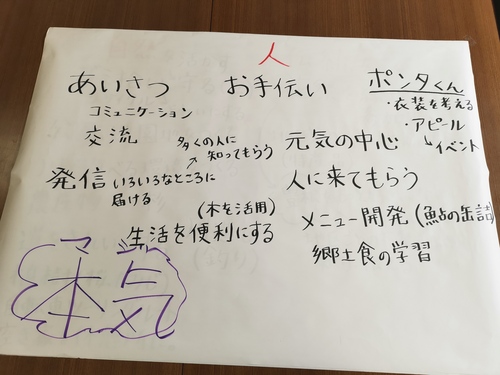 人
あいさつ
お手伝い
ポンタくん
コミュニケーション
・衣装を考える
・アピール
↳イベント
交流
多くの人に
↗知ってもらう
元気の中心
発信
いろいろなところに
届ける
人に来てもらう
(木を活用)
生活を便利にする
メニュー開発(鮎の缶詰
郷土食の学習
本気